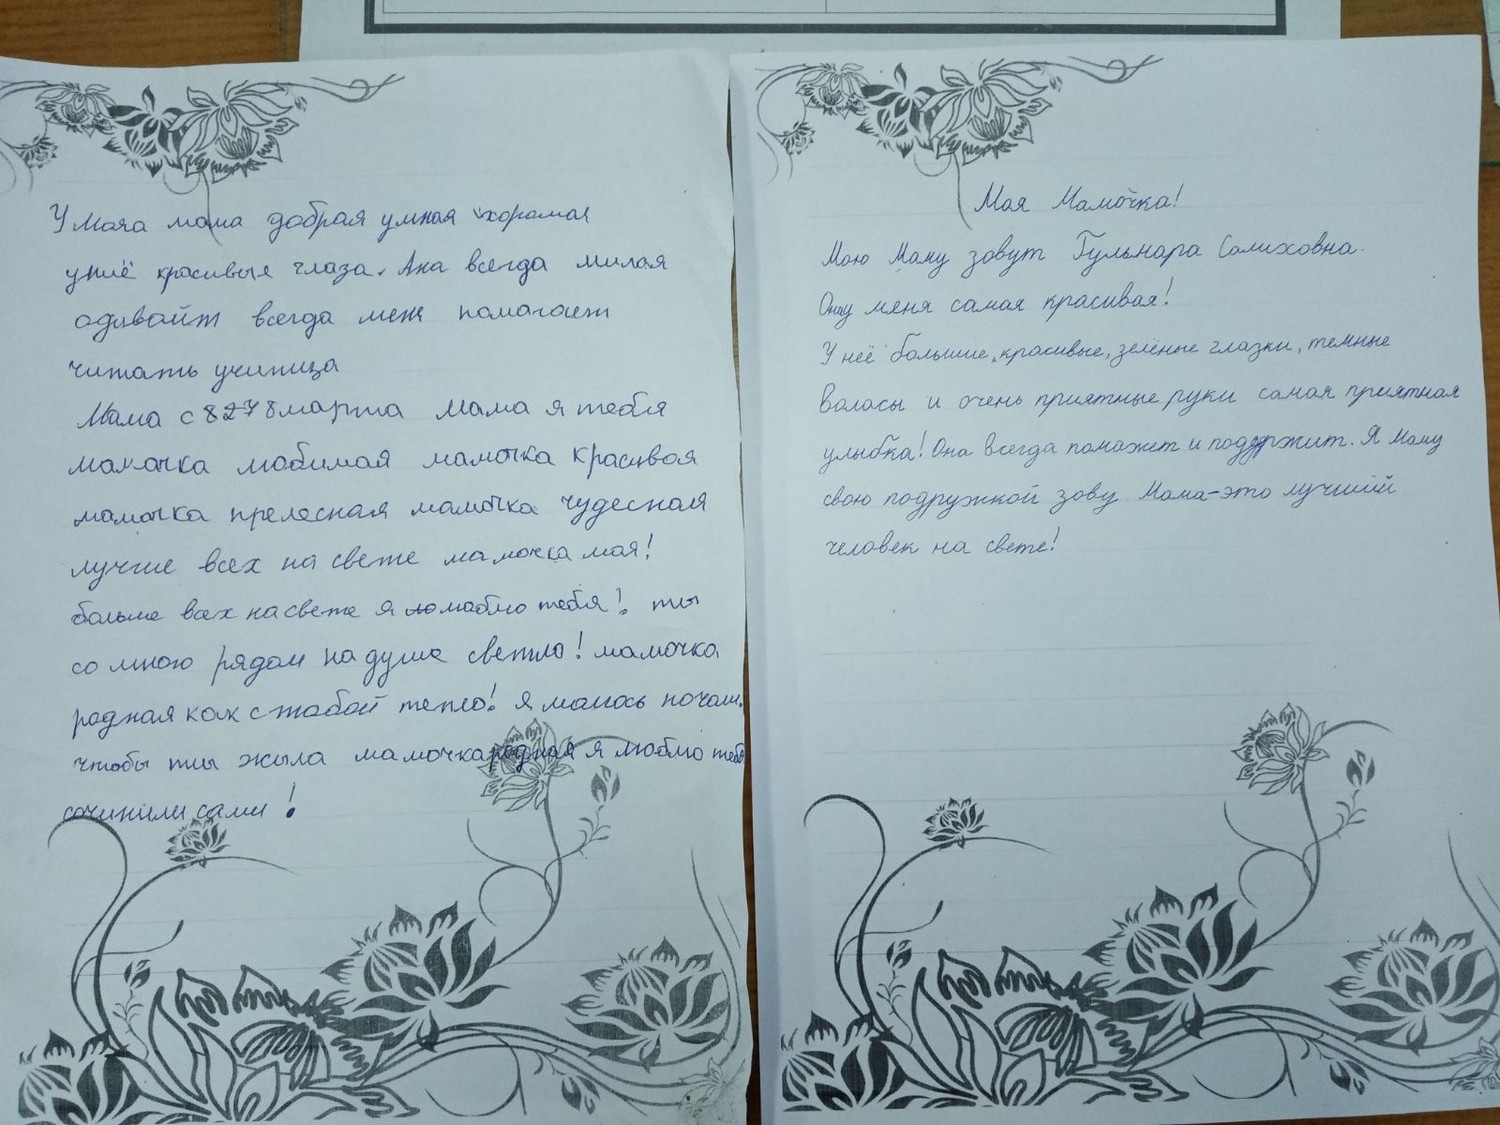 У Маяа мама добрая умная хорамая
униё красивые глаза. Ана всегда милая
одывайт всегда меня памагает
читать учитица
Мама с 8 278 марта Мама я тебя
мамачка любимая мамочка красивоя
мамочка прелесная мамочка чудесная
лучше всех на свете мамочка мая!
больше всех на свете я ломаблю тебя! ты
со мною рядом на душе светло! мамочка
радная как с табой тепло! я малюсь ночами.
чтобы ты жыла мамочка родная я люблю тебя
сочинили сами!
Мая Мамочка!
Мою Маму зовут Гульнара Салиховна.
Она у меня самая красивая!
У неё большие, красивые, зелёные глазки, темные
валасы и очень приятные руки самая приятная
улыбка! Она всегда поможет и поддержит. Я Маму
свою подружкой зову Мама-это лучший
человек на свете!